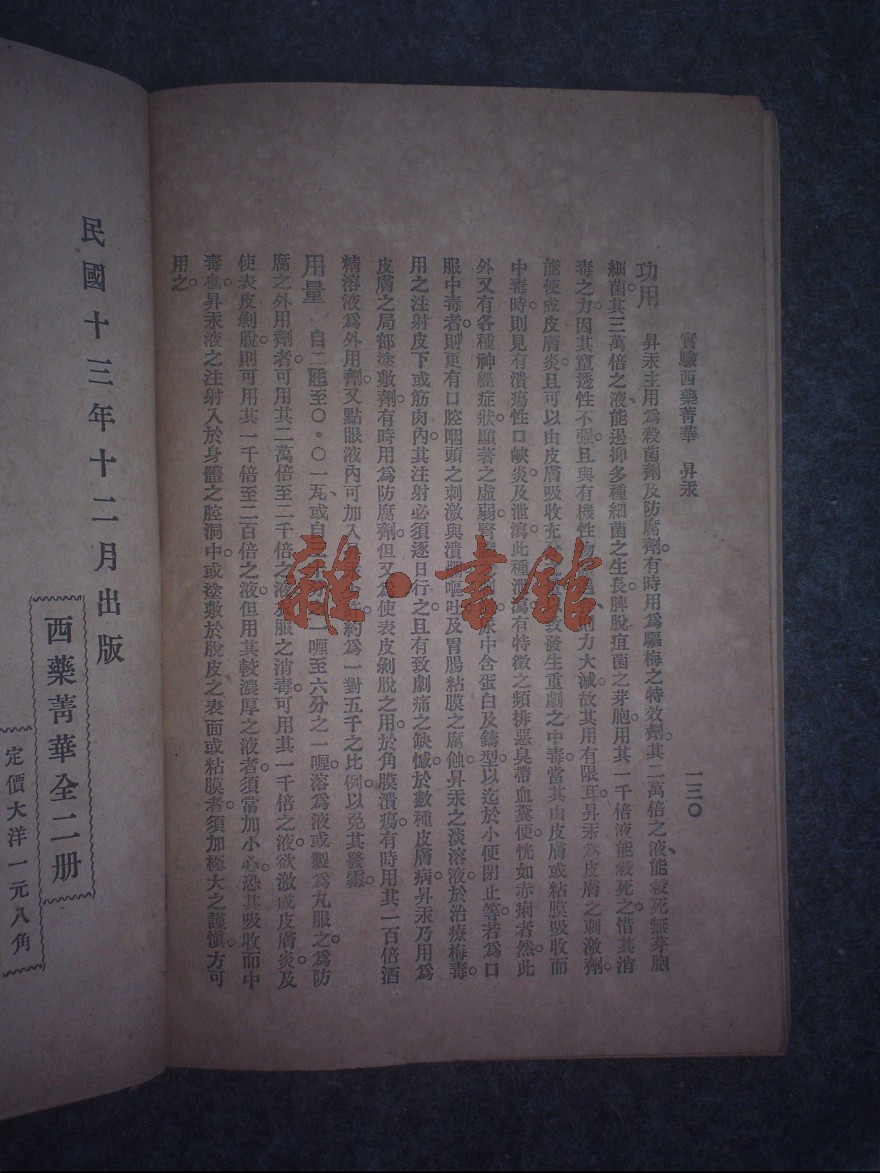 實驗西藥菁華　昇汞
一三〇
功用　昇汞主用爲殺菌劑及防腐劑。有時用爲驅梅之特效劑。其二萬倍之液、能殺死無芽胞
細菌。其三萬倍之液、能遏抑多種細菌之生長。脾脫疽菌之芽胞、用其一千倍液能殺死之。惜其消
毒之力、因其竄透性不强。且與有機性物 力大減。故其用有限耳。昇汞爲皮膚之刺激劑。
能使成皮膚炎。且可以由皮膚吸收充 致發生重劇之中毒。當其由皮膚或粘膜吸收而
中毒時、則見有潰瘍性口峽炎及泄瀉。此種泄瀉有特徵之頻排惡臭帶血糞便、恍如赤痢者然。此
外又有各種神經症狀、顯著之虛弱、腎 尿中含蛋白及鑄型、以迄於小便閉止等。若爲口
服中毒者、則更有口腔咽頭之刺激與潰爛、嘔吐及胃腸粘膜之腐蝕。昇汞之淡溶液、於治療梅毒
用之注射皮下或筋肉內。其注射必須逐日行之。且有致劇痛之缺憾。於數種皮膚病、昇汞乃用爲
皮膚之局部塗敷劑。有時用爲防腐劑。但又爲使表皮剝脫之用。於角膜潰瘍、有時用其一百倍酒
精溶液爲外用劑。又點眼液內可加入 約爲一對五千之比例、以免其發霉。
用量　自二瓱至〇・〇一瓦、或自三 一喱至六分之一喱、溶爲液或製爲丸服之。爲防
腐之外用劑者、可用其二萬倍至二千倍之液。 服之消毒可用其一千倍之液。欲激成皮膚炎及
使表皮剝脫、則可用其一千倍至二百倍之液。但用其較濃厚之液者、須當加小心、恐其吸收而中
毒也。昇汞液之注射入於身體之腔洞中、或塗敷於脫皮之表面或粘膜者、須加極大之謹愼、方可
用之。
民國十三年十二月出版
西藥菁華全二册
定價大洋一元八角
雜・書館